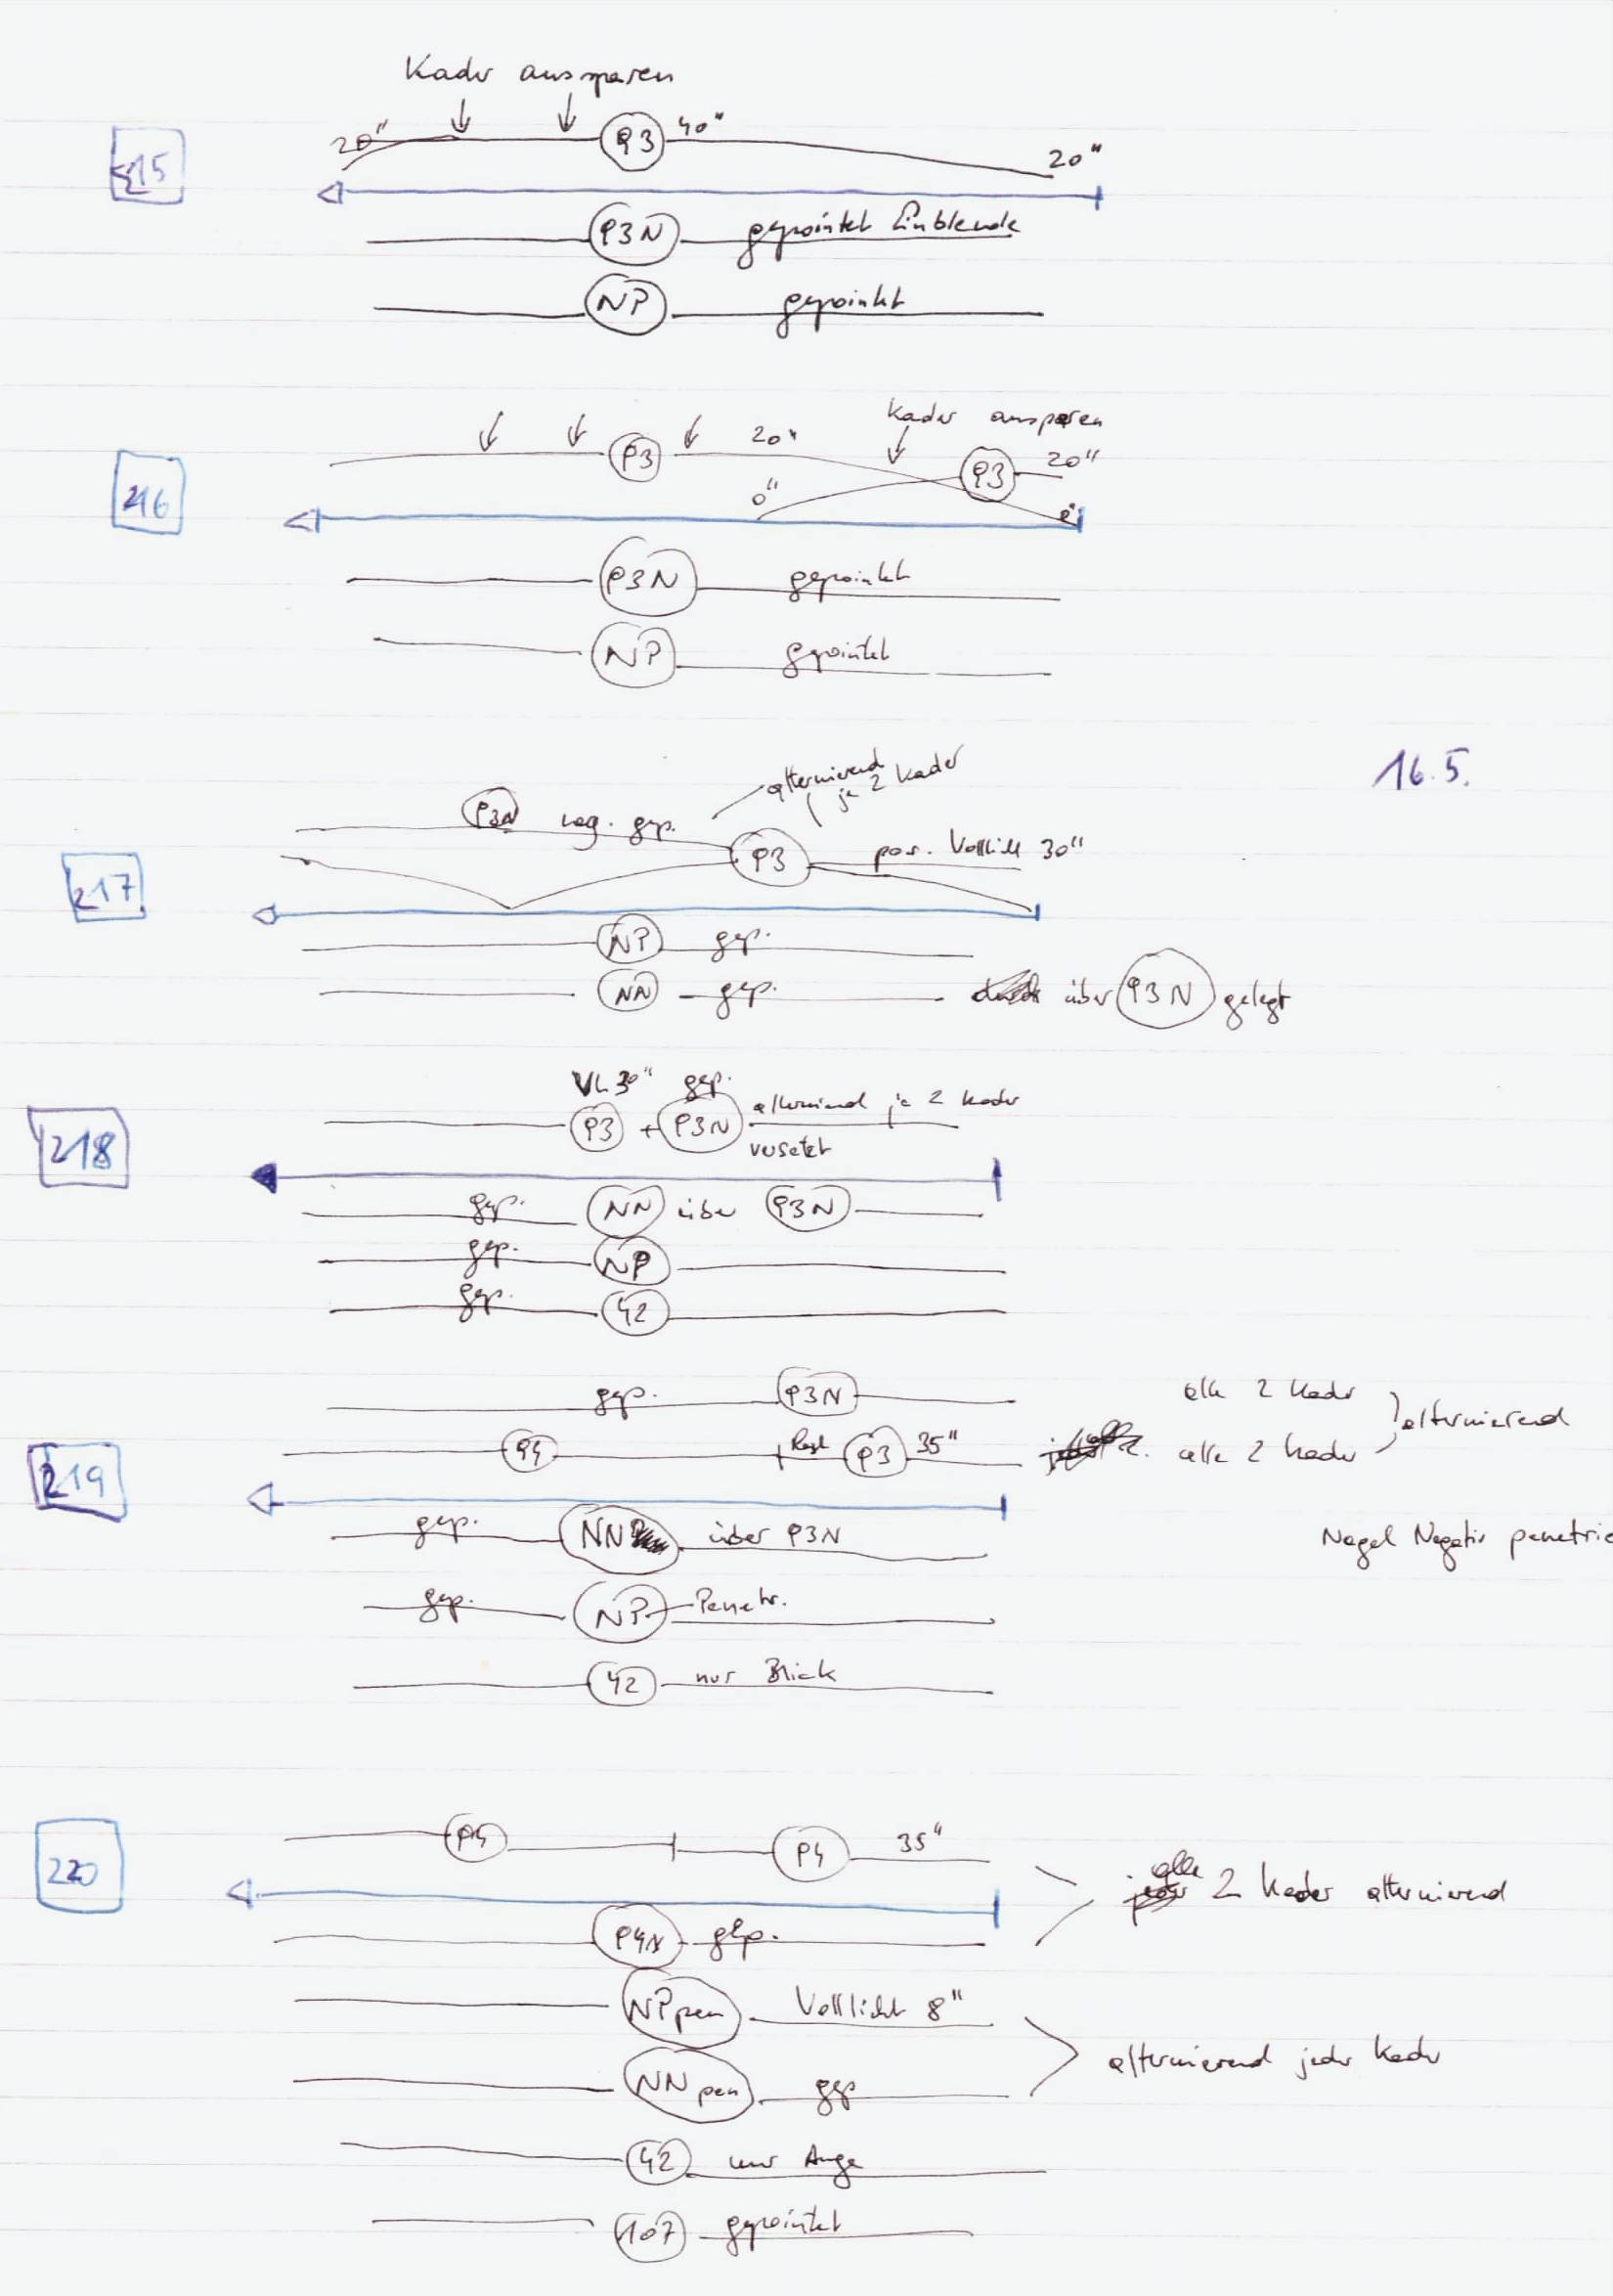 Kader aussparen
20" P3 40" 20"
215
P3N gepointet Einblende
NP gepointet
Kader aussparen
P3 20" P3 20"
0" 0"
216
P3N gepointet
NP gepointet
16.5.
alternierend
je 2 Kader
P3N neg. gep.
P3 pos. Vollicht 30"
217
NP gep.
NN gep. über P3N gelegt
VL 30" gep.
P3 + P3N alternierend je 2 Kader
versetzt
218
gep. NN über P3N
gep. NP
gep. 42
gep. P3N alle 2 Kader
alternierend
P4 Rest P3 35" alle 2 Kader
219
gep. NN über P3N
Nagel Negativ penetrie
gep. NP Penetr.
42 nur Blick
P4 P4 35"
220
alle 2 Kader alternierend
P4N gep.
NPpen Vollicht 8"
alternierend jeder Kader
NNpen gep
42 nur Auge
107 gepointet